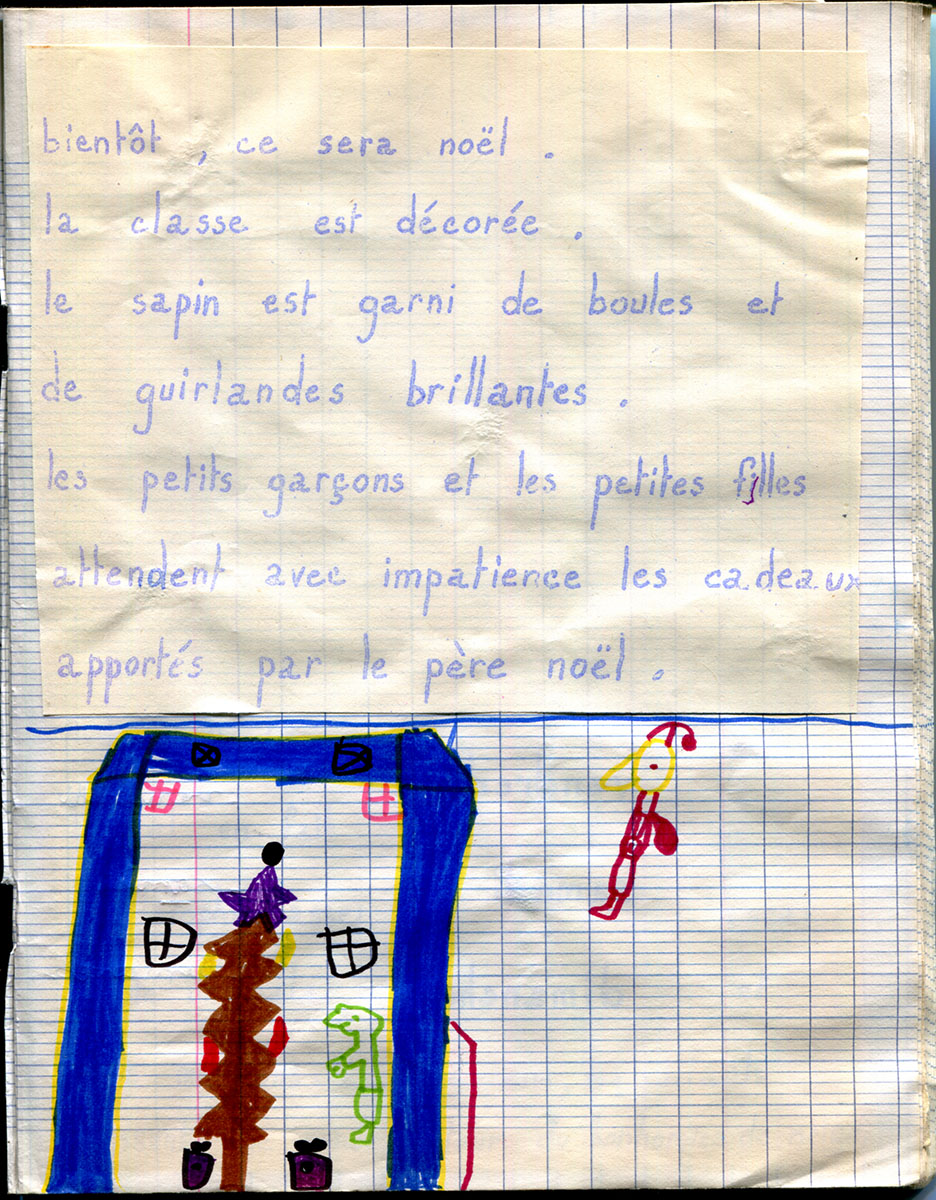 bientôt , ce sera noël .
la classe est décorée .
le sapin est garni de boules et
de guirlandes brillantes .
les petits garçons et les petites filles
attendent avec impatience les cadeaux
apportés par le père noël .